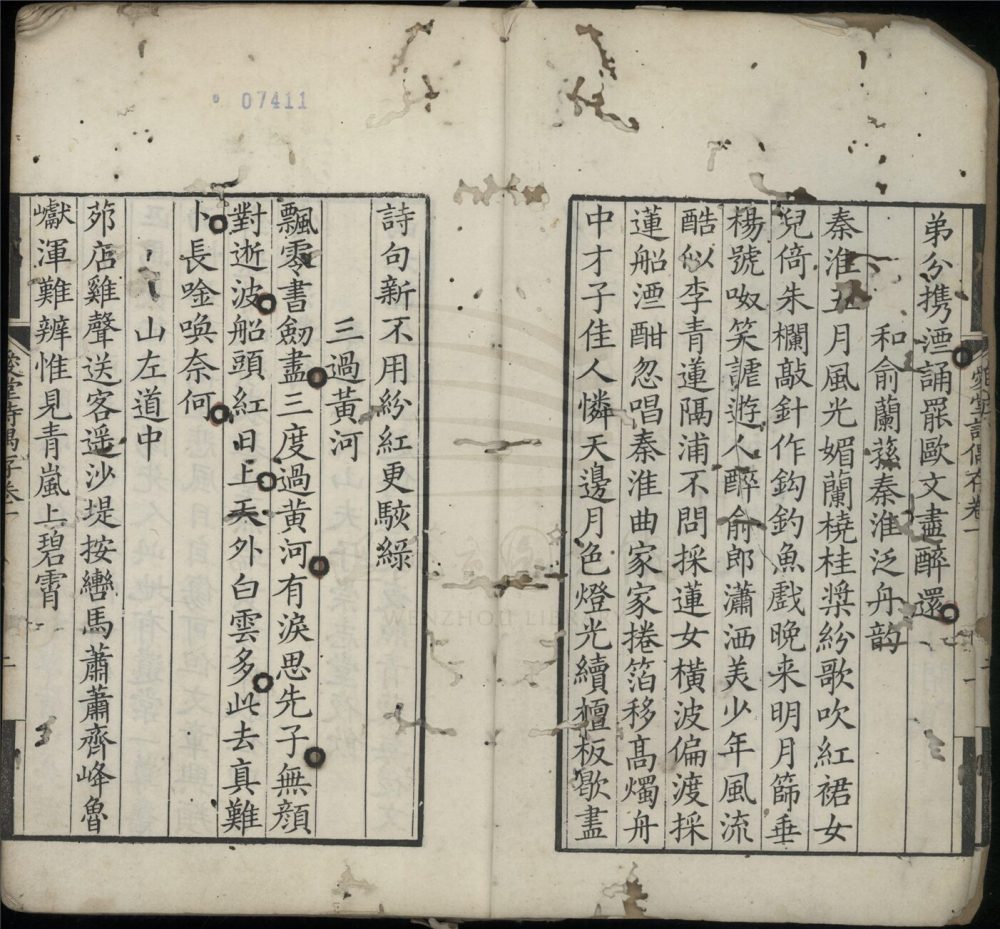 弟分携酒誦罷歐文盡醉還
和俞蘭蓀秦淮泛舟韵
秦淮五月風光媚蘭橈桂槳紛歌吹紅裙女
兒倚朱欄敲針作鈎釣魚戲晚来明月篩垂
楊號呶笑謔遊人醉俞郎瀟洒美少年風流
酷似李青蓮隔浦不問採蓮女橫波偏渡採
蓮船酒酣忽唱秦淮曲家家捲箔移髙燭舟
中才子佳人憐天邊月色燈光續檀板歇盡
詩句新不用紛紅更駭綠
三過黃河
飄零書劒盡三度過黃河有淚思先子無顏
對逝波船頭紅日上天外白雲多此去真難
卜長唫喚奈何
山左道中
茆店雞聲送客遥沙堤按轡馬蕭蕭齊峰魯
巘渾難辨惟見青嵐上碧霄
07411
WENZHOU LIBRARY